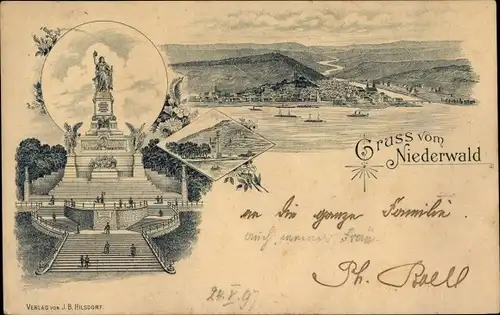 Gruss vom
Niederwald
an die ganze Familie
auch meiner Frau
Ph. Roell
24.V.97
VERLAG VON J. B. HILSDORF.